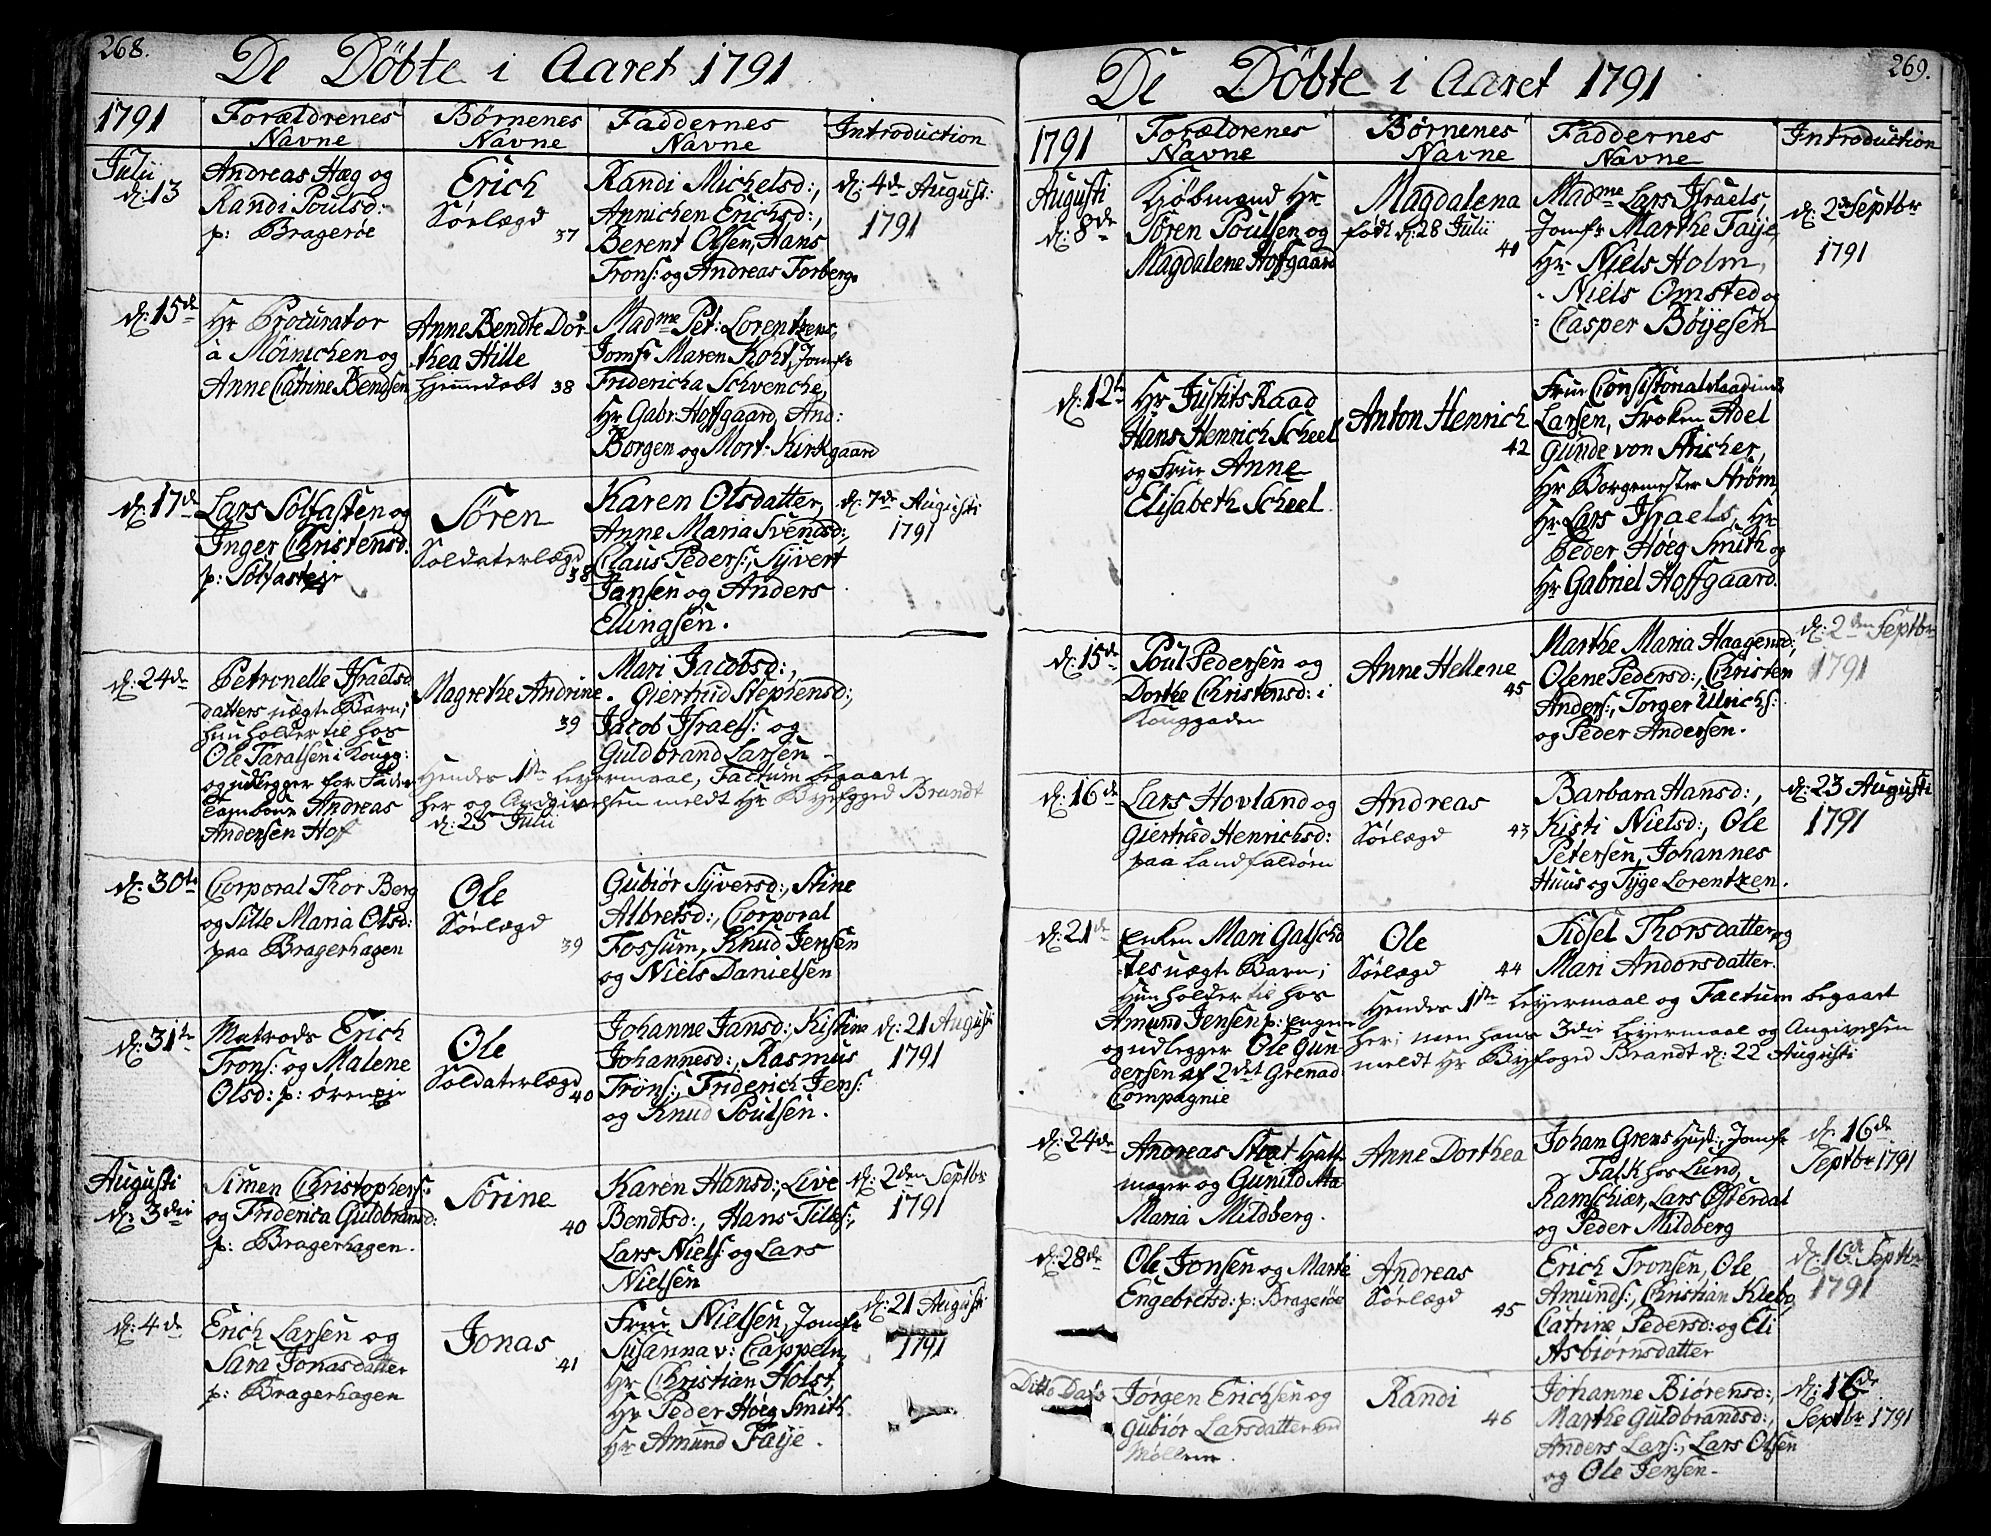 268.
De Döbte i Aaret 1791
1791
Forældrenes Navne
Børnenes Navne
Faddernes Navne
Introduction
Julii
d: 13
Andreas Hæg og
Randi Poulsd:
p: Bragerøe
Erich
Sörlægd
37
Randi Michelsd:,
Annichen Erichsd:,
Berent Olsen, Hans
Trons: og Andreas Forberg.
d: 4de Augusti
1791
d: 15de
Hr Procurator
à Möinichen og
Anne Catrine Bendsen
Anne Bendte Dor-
thea Hille
Hjemmedøbt 38
Madme Pet: Lorentzens,
Jomfr Maren Kort, Jomfr
Fridericha Schvencke,
Hr Gabr: Hoffgaard, And:
Borgen og Mort: Kirkgaard
d: 17de
Lars Solfasten og
Inger Christensd:
p: Solfasteje
Sören
Soldaterlægd
38
Karen Olsdatter,
Anne Maria Svendsd:,
Claus Peders:, Syvert
Jansen og Anders
Ellingsen.
d: 7de Augusti
1791
d: 24de
Petronelle Israels
datters uægte Barn;
hun holder til hos
Ole Taraldsen i Kongg:
og udlegger for Fader
Andreas
Andersen Hof
Magrethe Andrine
39
Mari Jacobsd:,
Giertrud Stephensd:,
Jacob Israels: og
Guldbrand Larsen
Hendes 1ste Leyermaal, Factum begaaet
her og Angivelsen meldt Hr Byefoged Brandt
d: 25 Julii
d: 30te
Corporal Thor Berg
og Sille Maria Olsd:
paa Bragerhagen
Ole
Sörlægd
39
Gubiör Syversd:, Stine
Albretsd:, Corporal
Fossum, Knud Jensen
og Niels Danielsen
d: 31te
Matrods Erich
Trons: og Malene
Olsd: p: örene
Ole
Soldaterlægd
40
Johanne Jansd:, Kistine
Johannesd:, Rasmus
Trons:, Friderich Jens:
og Knud Poulsen.
d: 21 Augusti
1791
Augusti
d: 3die
Simen Christophers:
og Friderica Guldbrandsd:
p: Bragerhagen.
Sörine
40
Karen Hansd:, Live
Bendtsd:, Hans Tilles:,
Lars Niels: og Lars
Nielsen
d: 2den Septbr
1791
d: 4de
Erich Larsen og
Sara Jonasdatter
p: Bragerhagen
Jonas
41
Frue Nielsen, Jomfr
Susanna v: Cappeln,
Hr Christian Holst,
Hr Peder Höeg Smith
Hr Amund Faije.
d: 21 Augusti
1791
269.
De Döbte i Aaret 1791
1791
Forældrenes Navne
Børnenes Navne
Faddernes Navne
Introduction
Augusti
d: 8de
Kjöbmand Hr
Sören Poulsen og
Magdalene Hoffgaard
Magdalena
född d: 28 Julii
41
Madme Lars Israels,
Jomfr Marthe Faije,
Hr Niels Holm,
- Niels Omsted og
- Casper Böyesen
d: 2 Septbr
1791
d: 12te
Hr Justits Raad
Hans Henrich Scheel
og Frue Anne
Elisabeth Scheel.
Anton Henrich
42
Frue Consistorialraadinde
Larsen, Fröken Adel
Gunde von Aricher,
Hr Borgemester Ström
Hr Lars Israels, Hr
Peder Höeg Smith og
Hr Gabriel Hoffgaard.
d: 15de
Poul Pedersen og
Dorthe Christensd: i
Konggaden
Anne Hellene
45
Marthe Maria Haagensd:,
Olene Pedersd:, Christen
Anders:, Torger Ulrichs:
og Peder Andersen.
d: 2den Septbr
1791
d: 16de
Lars Hovland og
Giertrud Henrichsd:
paa Landfaldöen
Andreas
Sörlægd
43
Barbara Hansd:,
Kisti Nielsd:, Ole
Petersen, Johannes
Huus og Tyge Lorentzen.
d: 23 Augusti
1791
d: 21de
Enken Mari Galsch
uægte Barn;
Hun holder til hos
Amund Jensen p: Engene
og udlegger Ole Gun-
dersen af 2det Grenad
Compagnie
Ole
Sörlægd
44
Sidsel Thorsdatter og
Mari Andorsdatter.
Hendes 1ste Leyermaal og Factum begaaet
her; men hans 3die Leyermaal og Angivelsen
meldt Hr Byfoged Brandt d: 22 Augusti
d: 24de
Andreas Stoet Hatt
mager og Gunild
Maria Mildberg.
Anne Dorthea
Johan Grens Hust:, Jomfr
Falk hos Lund,
Ramschiær, Lars Österdal
og Peder Mildberg
d: 16de
Septbr 1791
d: 28de
Ole Jonsen og Marte
Engebretsd: p: Bragerøe
Andreas
Sörlægd
45
Erich Tronsen, Ole
Amunds:, Christian Klebo,
Catrine Pedersd: og Eli
Asbiörnsdatter
d: 16de Septbr
1791
Ditto Dato
Jörgen Erichsen og
Gubiör Larsdatter
Möllen
Randi
46
Johanne Biörensd:,
Marthe Guldbrandsd:,
Anders Lars:, Lars Olsen
og Ole Jensen.
d: 16de
Septbr 1791